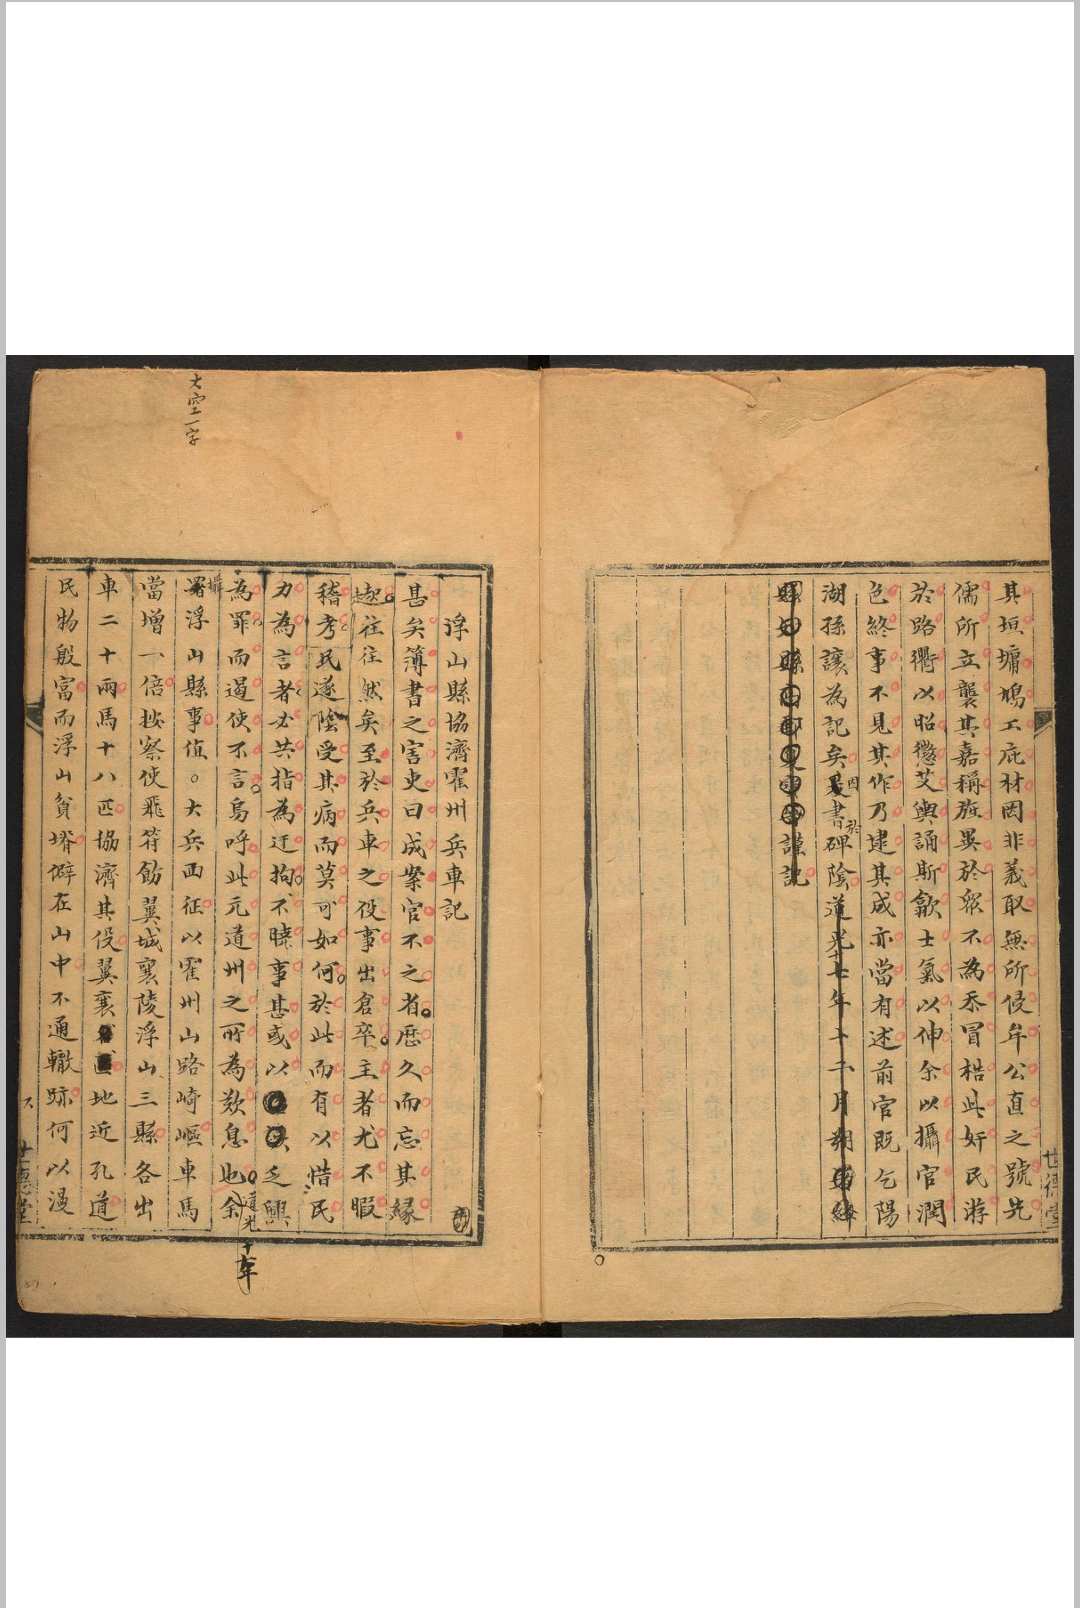 其垣墉鳩工庇材罔非義取無所侵牟公直之號先
儒所立襲其嘉稱旌異於衆不為忝冒梏此奸民游
於路衢以昭懲艾輿誦斯歙士氣以伸余以攝官潤
色終事不見其作乃建其成亦當有述前官既乞陽
湖孫讓為記矣因書於碑陰道光十七年十二月朔
謹記
世德堂
浮山縣協濟霍州兵車記
甚矣簿書之害吏曰成案官不之省歷久而忘其緣
趣往往然矣至於兵車之役事出倉卒主者尤不暇
稽考民遂陰受其病而莫可如何於此而有以惜民
力為言者必共指為迂拘不曉事甚或以乏興
為罪而遏使不言烏呼此元道州之所為歎息也余
道光十年
攝浮山縣事值。大兵西征以霍州山路崎嶇車馬
當增一倍按察使飛符飭翼城襄陵浮山三縣各出
車二十兩馬十八匹協濟其役翼襄地近孔道
民物殷富而浮山貧瘠僻在山中不通轍跡何以漫
大空一字
世德堂